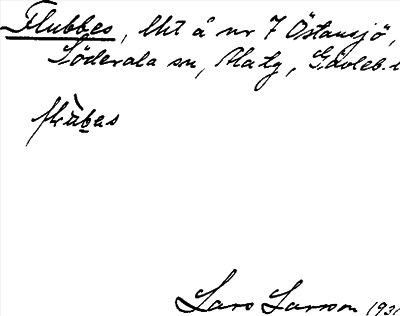 Flubbes, lht å nr 7 Östansjö,
Söderala sn, Hälg, Gävleb. l
Lars Larsson 193